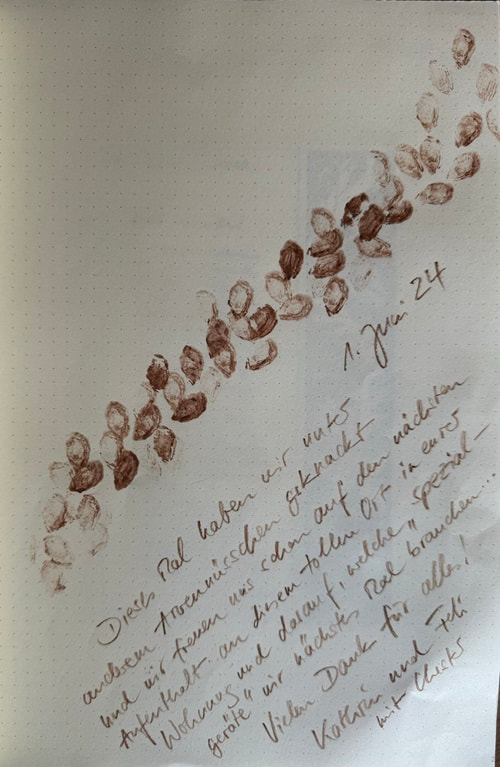 1. Juni 24
Dieses Mal haben wir unter
anderem Arvennüsschen geknackt
und wir freuen uns schon auf den nächsten
Aufenthalt an diesem tollen Ort in eurer
Wohnung und darauf, welche „Spezial-
geräte“ wir nächstes Mal brauchen...
Vielen Dank für alles!
Kathrin und Feli
mit Chester